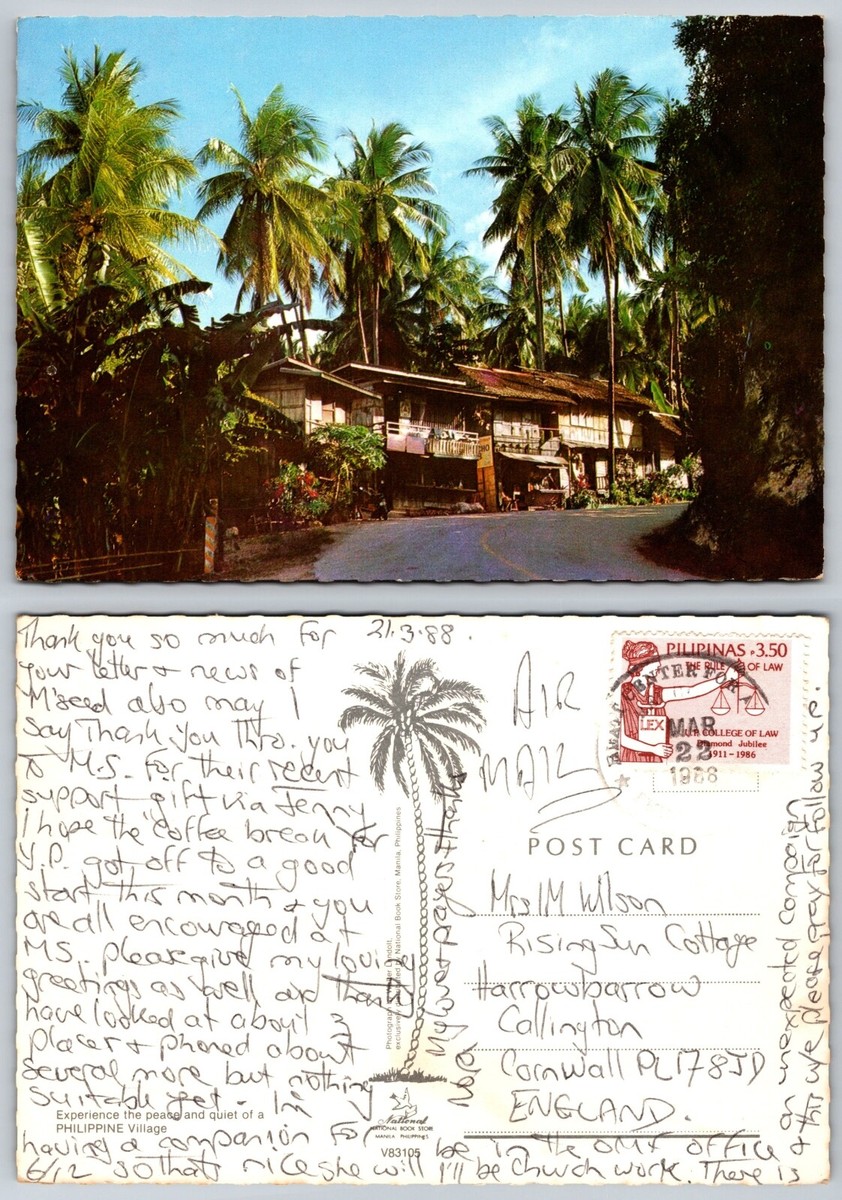 21.3.88.
Thank you so much for
your letter & news of
M'seed also may I
say Thank You thro. you
to M.S. for their recent
support gift via Jenny
I hope the coffee break for
V.P. got off to a good
start this month & you
are all encouraged at
MS. please give my loving
greetings as well and thanks
have looked at about 3
places & phoned about
several more but nothing
suitable yet - I'm
having a companion for
6/12 so thats nice she will be in the OMF office &
I'll be church work. There is
an unexpected campaign
this we please pray for follow up.
My love & prayers thanks
Nora
Experience the peace and quiet of a
PHILIPPINE Village
National
NATIONAL BOOK STORE
MANILA PHILIPPINES
V83105
exclusively National Book Store, Manila, Philippines
AIR
MAIL
PILIPINAS P3.50
THE RULE OF LAW
LEX
U.P. COLLEGE OF LAW
Diamond Jubilee
1911-1986
CENTER FOR
MAR
22
1988
POST CARD
Mrs M Wilson
Rising Sun Cottage
Harrowbarrow
Callington
Cornwall PL17 8JD
ENGLAND.